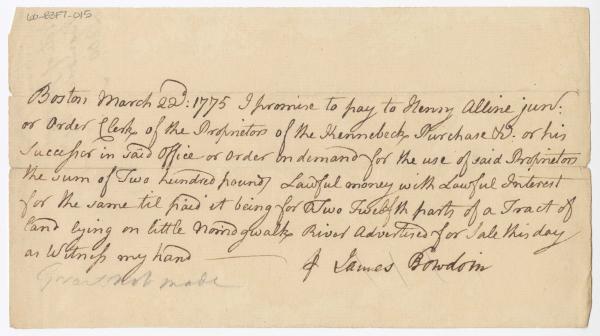 60-E3F7-015
Boston March 22d: 1775 I promise to pay to Henry Alline junr:
or Order Clerk of the Proprietors of the Kennebeck Purchase &c. or his
Successor in said Office or Order on demand for the use of said Proprietors
the sum of Two hundred pounds Lawful money with Lawful Interest
for the same til paid it being for Two Twelfth parts of a Tract of
land lying on little River Advertised for Sale this day
as Witness my hand James Bowdoin
Grant not made